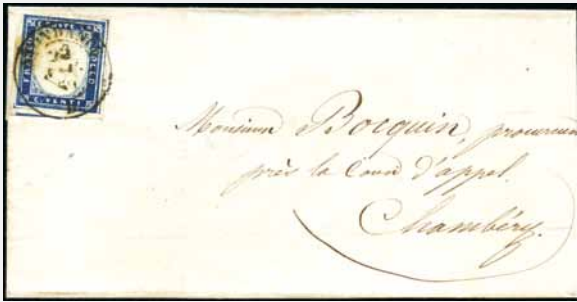 C. POSTE
FRANCO
BOLLO
C. VENTI
Monsieur Bocquin, procureur
près la Cour d'appel.
Chambéry.